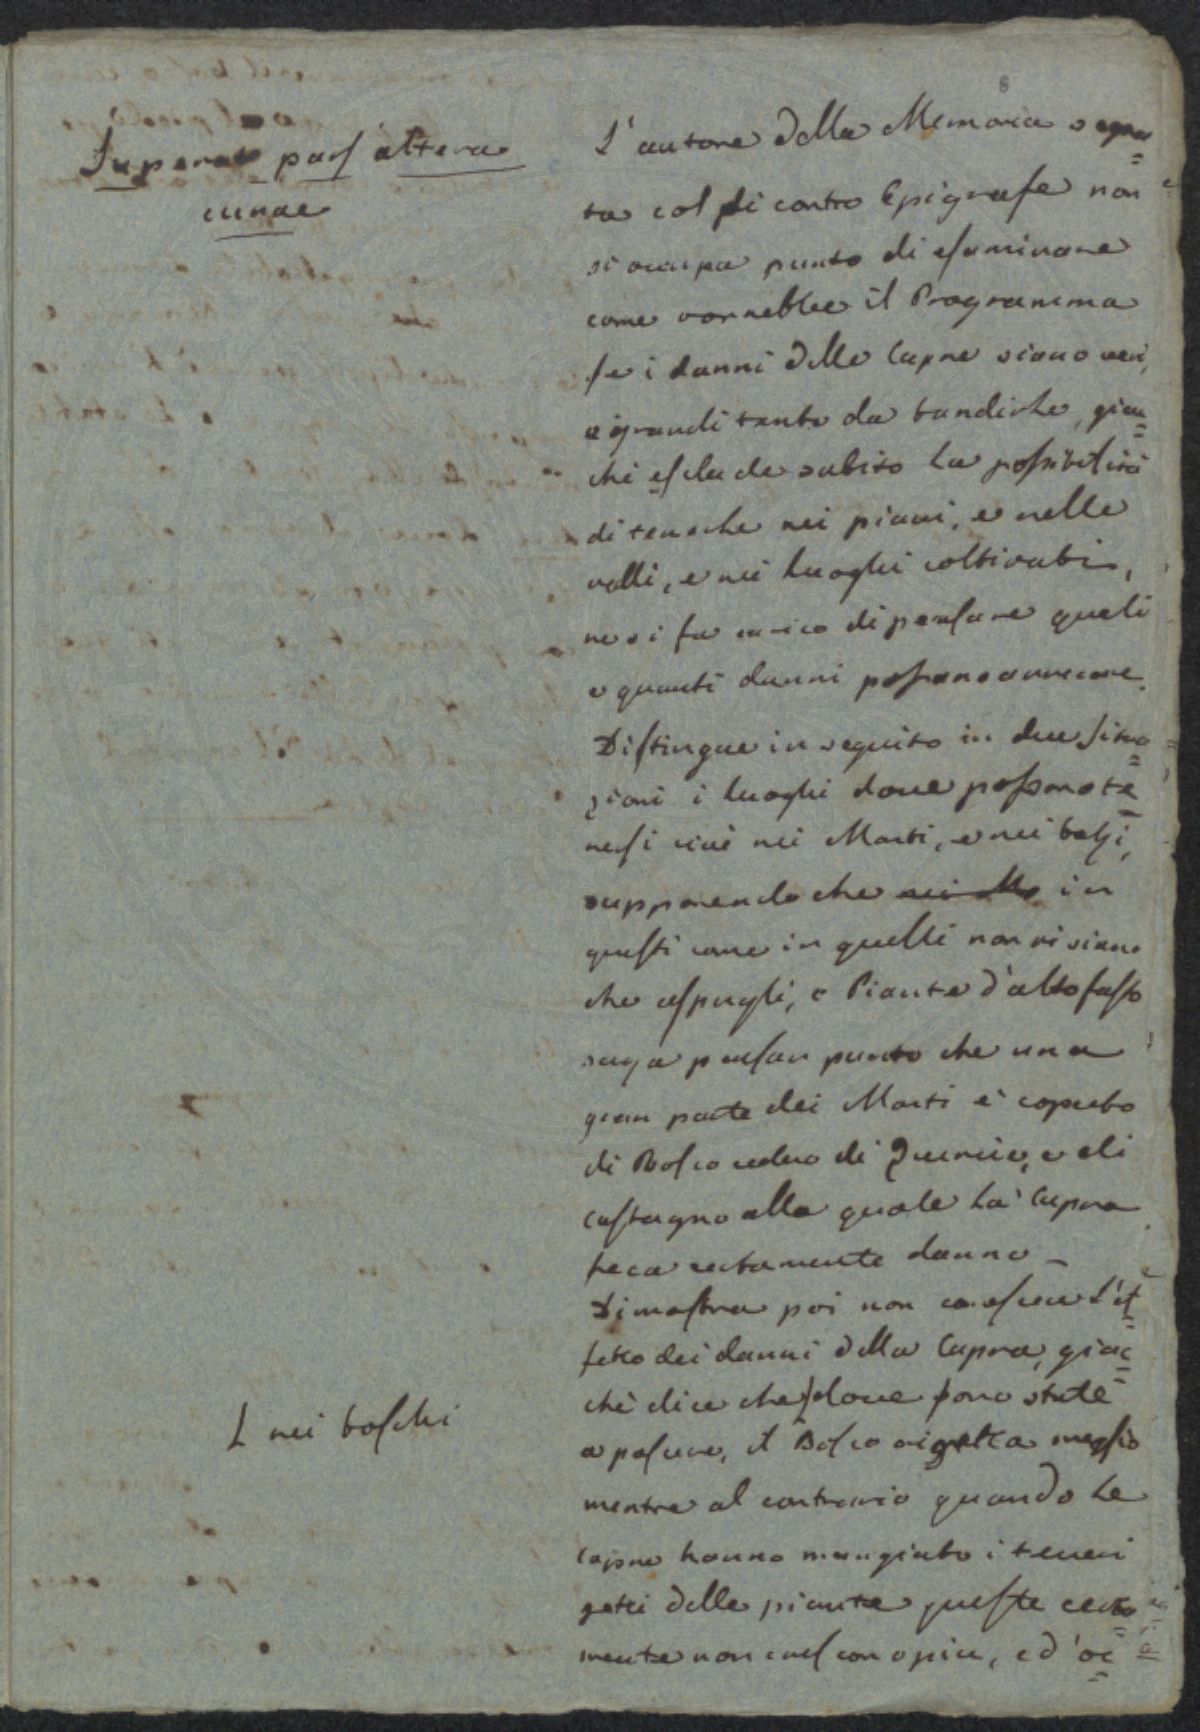 8
Superat pars altera
curae
L'autore della Memoria segna=
ta col di contro Epigrafe non
si occupa punto di esaminare
come vorrebbe il Programma
se i danni delle Capre siano veri,
e grandi tanto da bandirle, giac=
chè esclude subito la possibilità
di tenerle nei piani, e nelle
valli, e nei luoghi coltivati,
ne si fa carico di pensare quali
e quanti danni possano arrecare.
Distingue in seguito in due situa=
zioni i luoghi dove possono te=
nersi cioè nei Monti, e nei balzi,
supponendo che in
questi come in quelli non vi siano
che cespugli, e Piante d'alto fusto
senza pensar punto che una
gran parte dei Monti è coperto
di Bosco ceduo di Quercie, e di
castagno alla quale la Capra
reca certamente danno _
Dimostra poi non conoscere l'ef=
fetto dei danni della Capra, giac=
chè dice che dove sono state
L nei boschi
a pascere, il Bosco rigetta meglio
mentre al contrario quando le
capre hanno mangiato i teneri
getti delle piante queste certa=
mente non crescono più, ed oc=